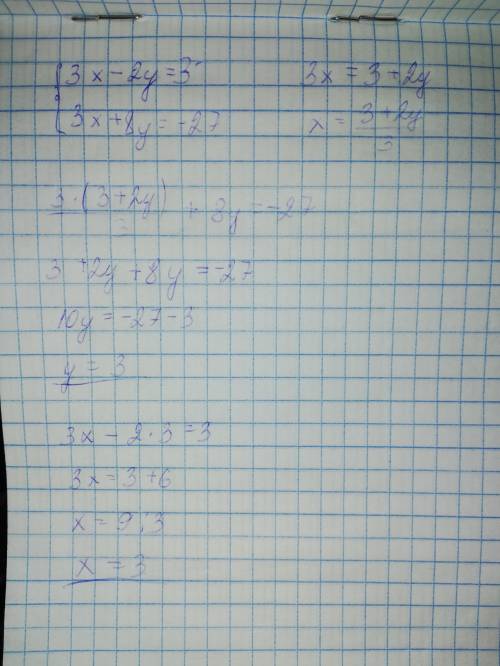 {3x-2y=3 3x=3+2y
{3x+8y=-27 x=(3+2y)/3
3·(3+2y)/3 + 8y=-27
3+2y+8y=-27
10y=-27-3
y=3
3x-2·3=3
3x=3+6
x=9:3
x=3